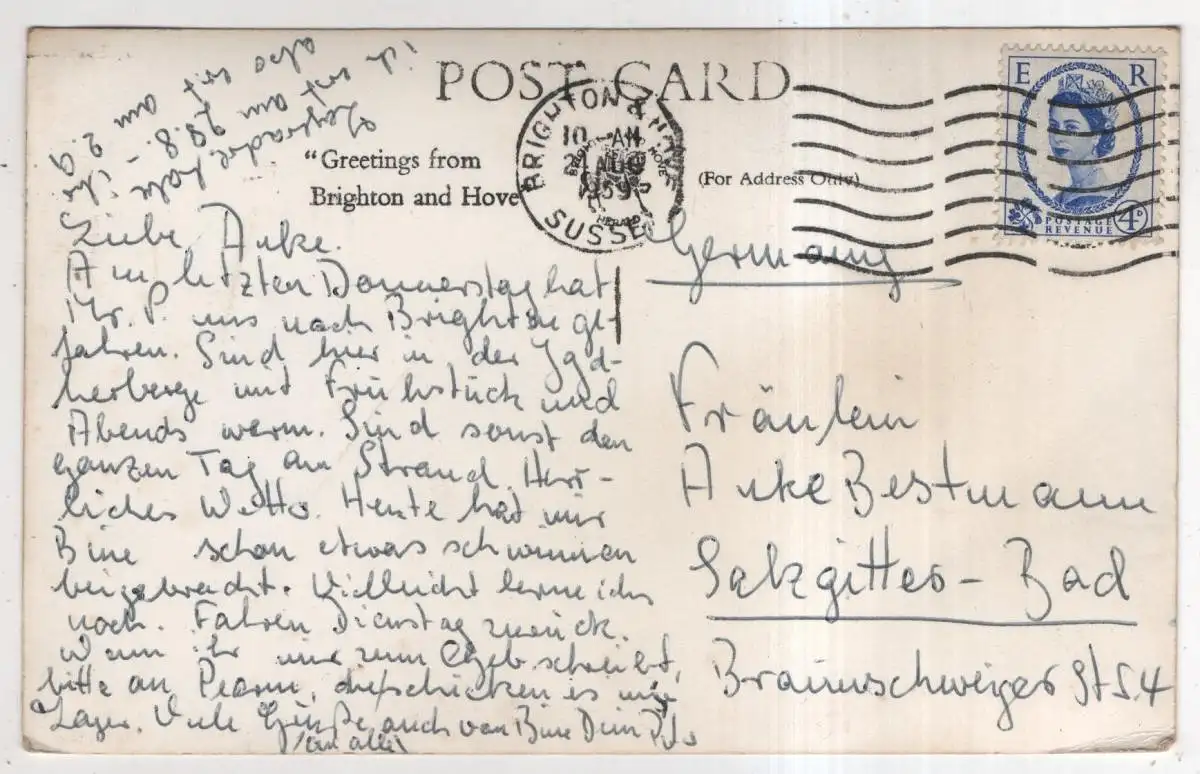 POST CARD
"Greetings from
Brighton and Hove"
(For Address Only)
BRIGHTON & HOVE
10-AM
AUG
1959
SUSSEX
E R
POSTAGE
REVENUE
4D
Liebe Anke.
Am letzten Donnerstag hat
Mr. P. uns nach Brighton ge-
fahren. Sind hier in der Jgd-
herberge mit Frühstück und
Abends warm. Sind sonst den
ganzen Tag am Strand. Herr-
liches Wetter. Heute hat mir
Bine schon etwas schwimmen
beigebracht. Vielleicht lerne ichs
noch. Fahren Dienstag zurück.
Wenn ihr mir zum Geb. schreibt,
bitte an Pearm, die schicken es ins
Lager. Viele Grüße auch von Bine Dein
an alle
ich
am 29.8.
am 2.9
Germany
Fräulein
Anke Bestmann
Salzgitter-Bad
Braunschweiger Str. 4